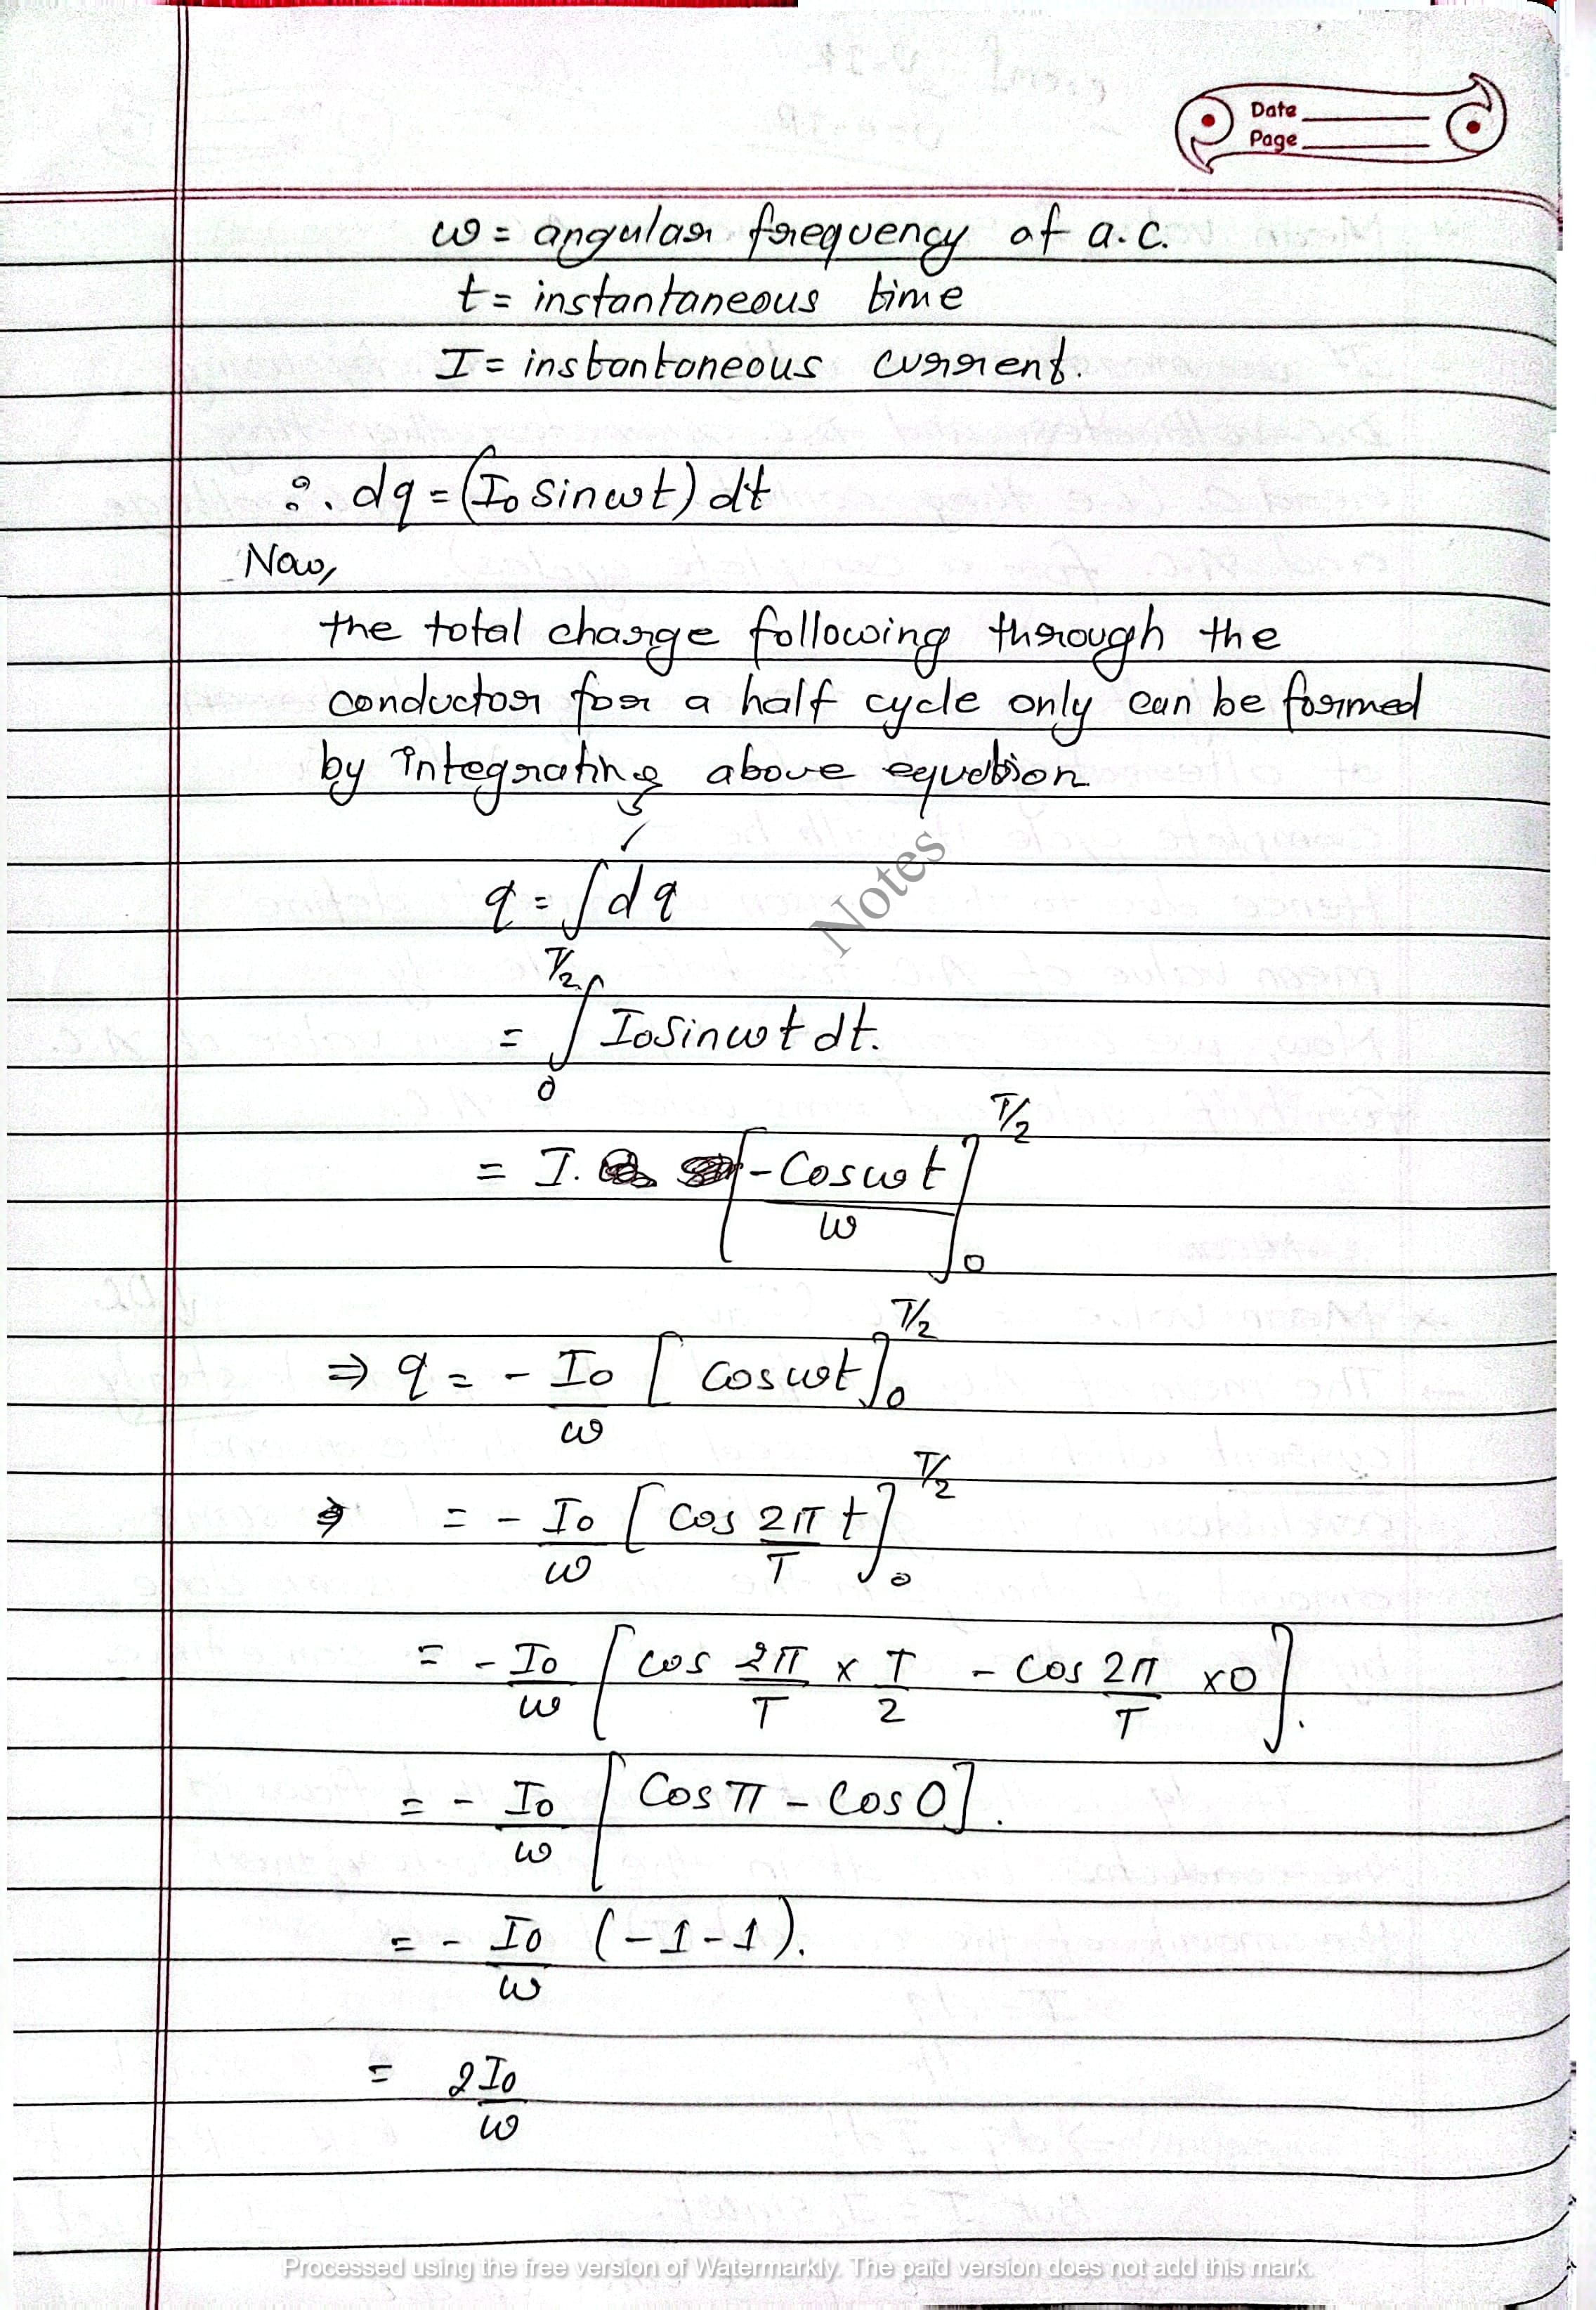 Date
Page
ω = angular frequency of a.c.
t = instantaneous time
I = instantaneous current.
∴ dq = (I₀ sinωt) dt
Now,
the total charge following through the
conductor for a half cycle only can be formed
by integrating above equation
q = ∫dq
= ∫₀^T/2 I₀ sinωt dt.
= I. [-Cosωt/ω]₀^T/2
⇒ q = - I₀/ω [cosωt]₀^T/2
⇒ = - I₀/ω [cos 2π/T t]₀^T/2
= - I₀/ω [cos 2π/T × T/2 - cos 2π/T × 0].
= - I₀/ω [Cos π - Cos 0].
= - I₀/ω (-1-1).
= 2I₀/ω
Notes
Processed using the free version of Watermarkly. The paid version does not add this mark.